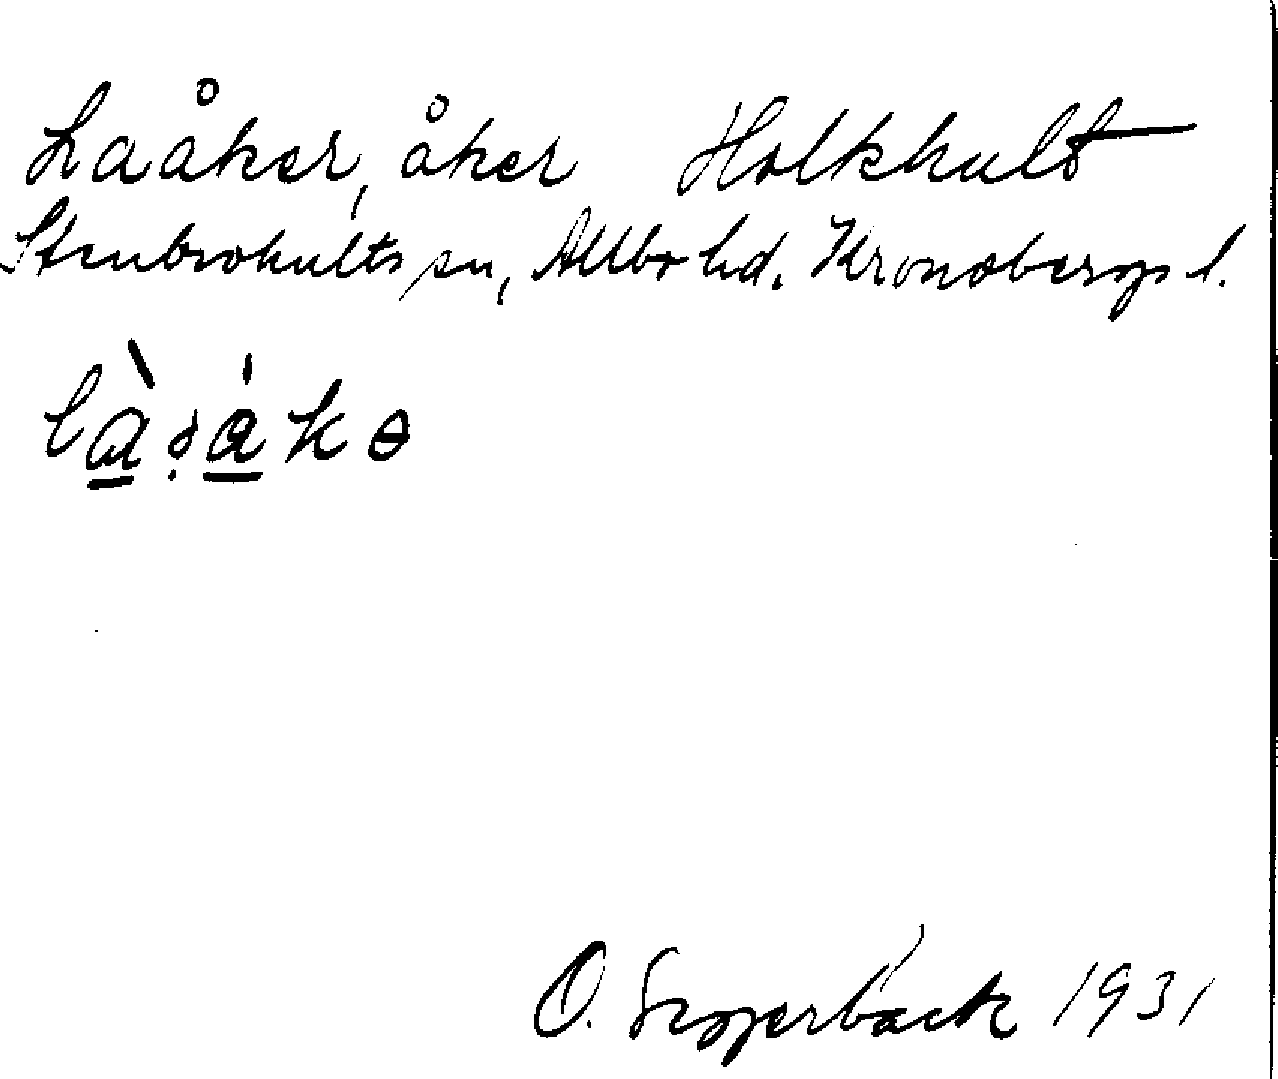 Laåker, åker Holkhult
Stenbrohults sn, Allbo hd. Kronobergs l.
O. 1931